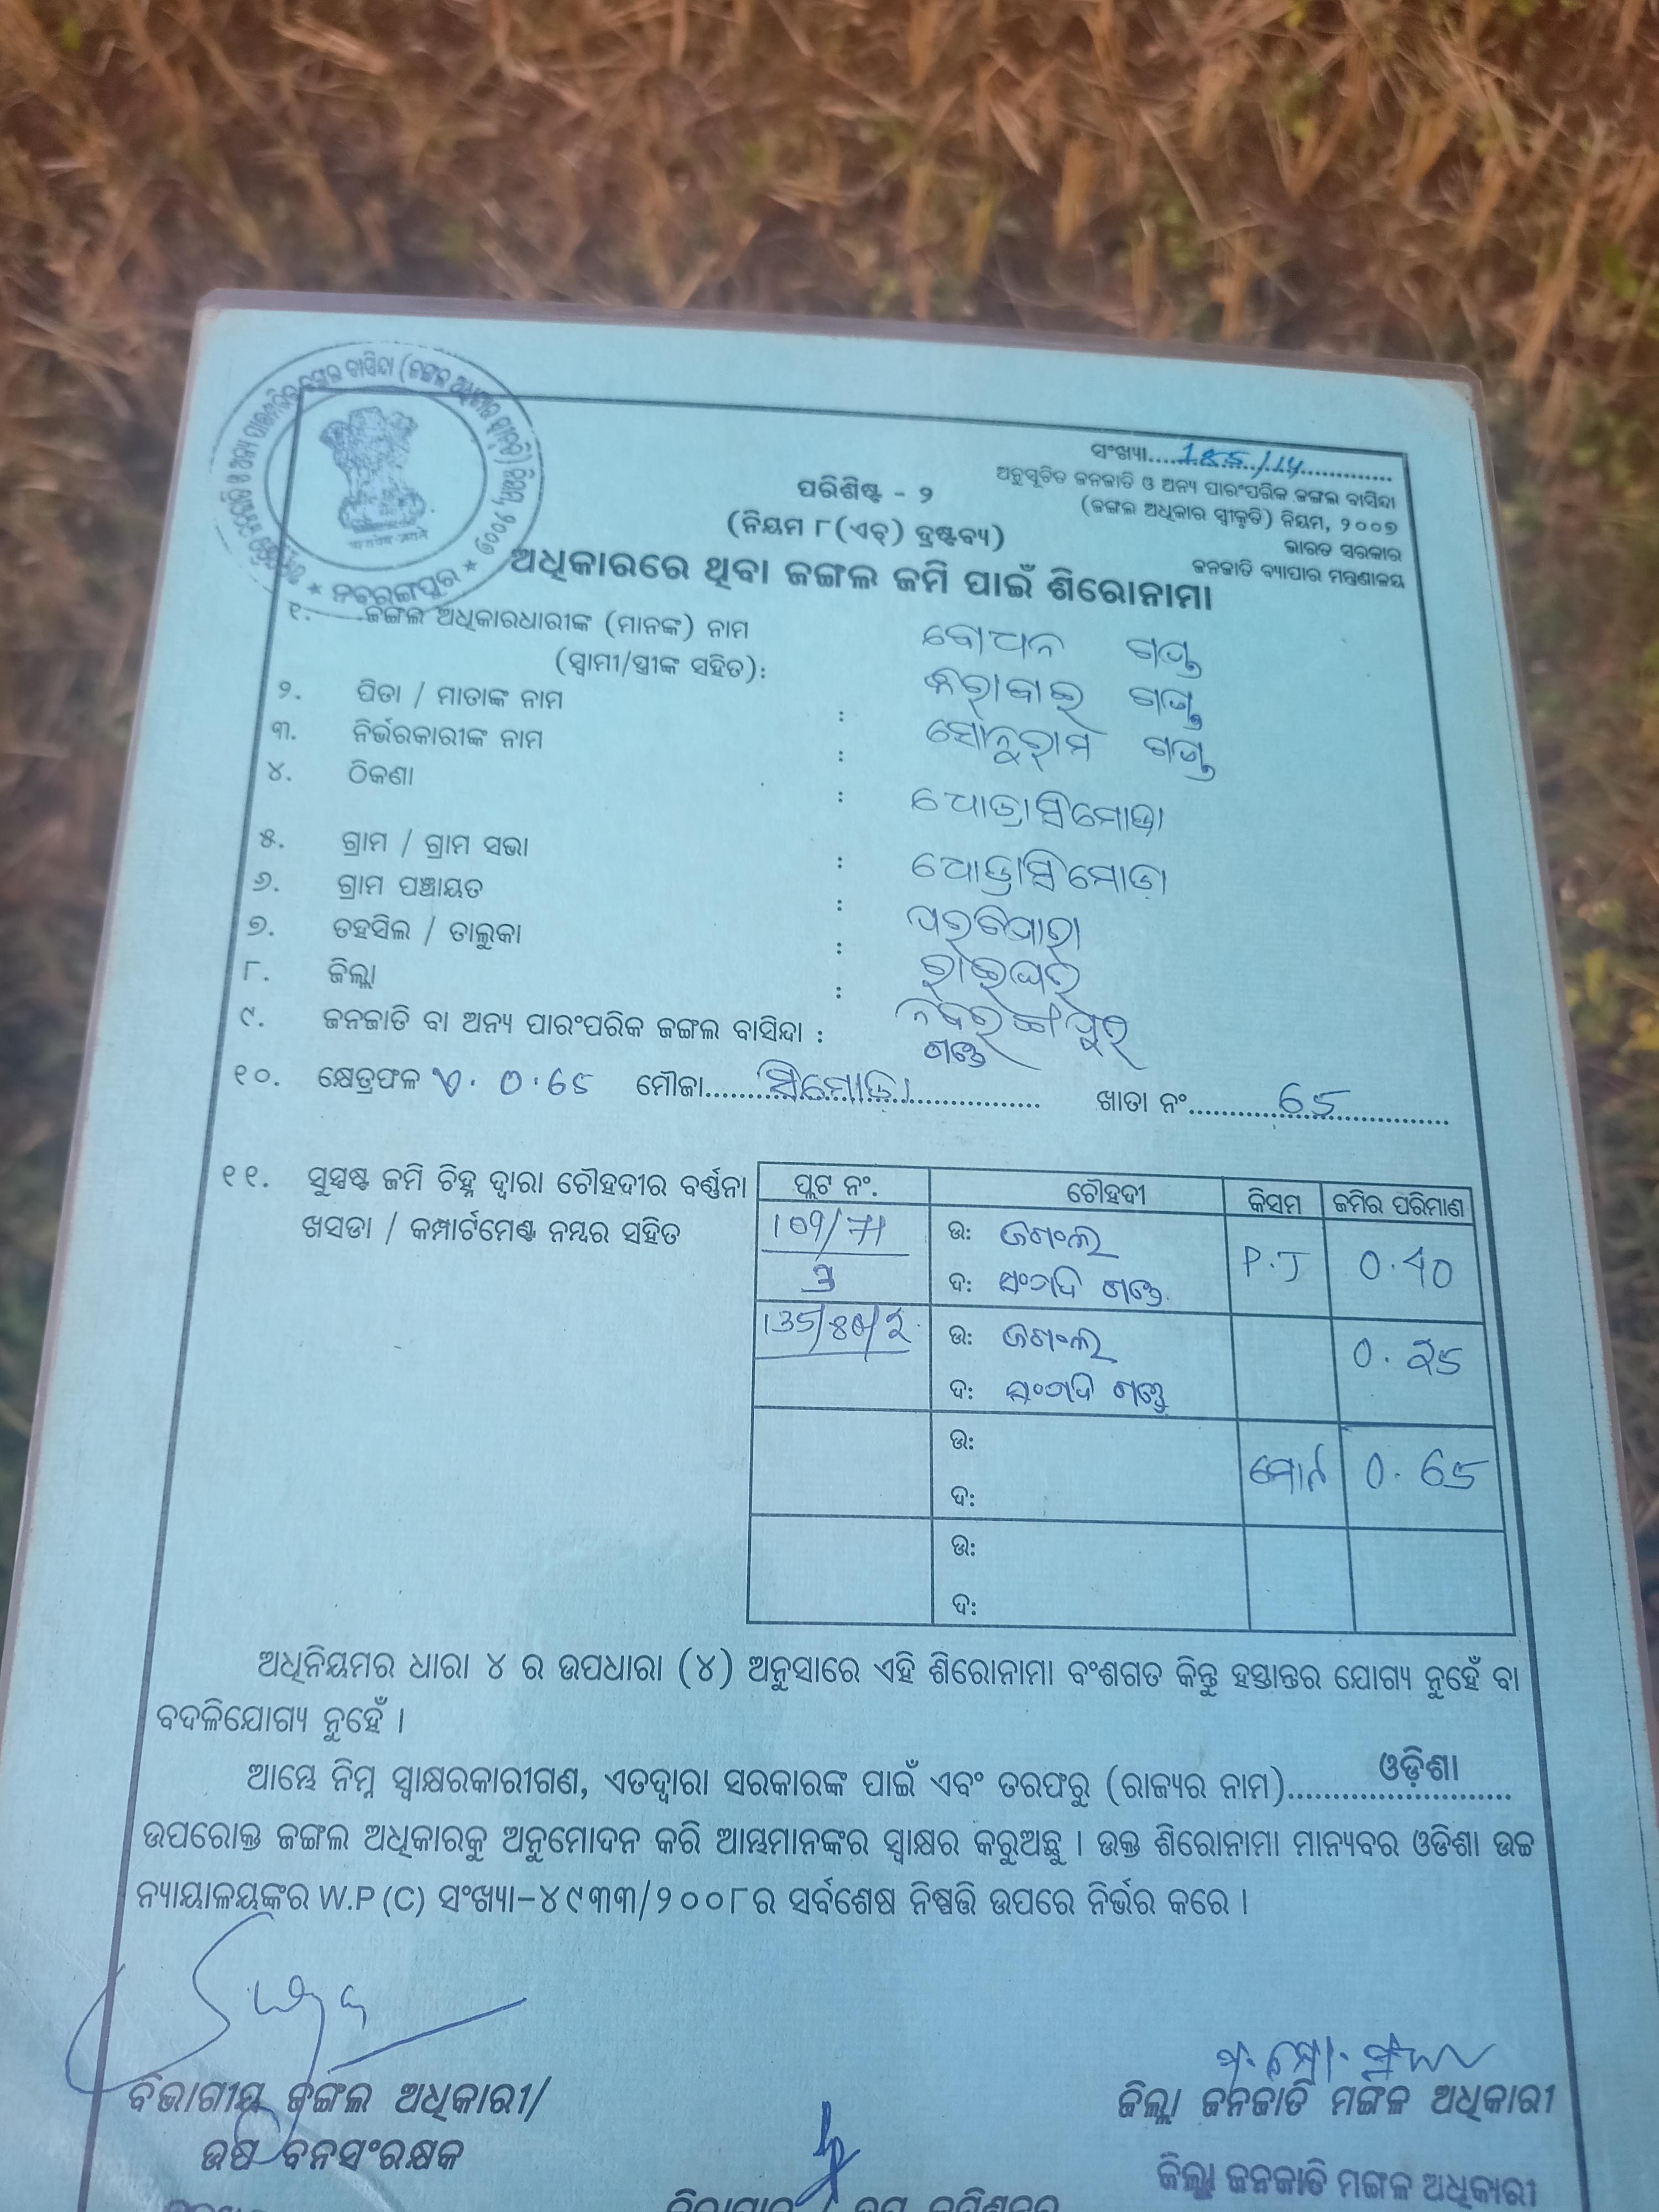 ସଂଖ୍ୟା.....185/14..............
ଅନୁସୂଚିତ ଜନଜାତି ଓ ଅନ୍ୟ ପାରଂପରିକ ଜଙ୍ଗଲ ବାସିନ୍ଦା
(ଜଙ୍ଗଲ ଅଧିକାର ସ୍ୱୀକୃତି) ନିୟମ, ୨୦୦୭
ଭାରତ ସରକାର
ଜନଜାତି ବ୍ୟାପାର ମନ୍ତ୍ରଣାଳୟ
ପରିଶିଷ୍ଟ - ୨
(ନିୟମ ୮(ଏଚ୍) ଦ୍ରଷ୍ଟବ୍ୟ)
ଅଧିକାରରେ ଥିବା ଜଙ୍ଗଲ ଜମି ପାଇଁ ଶିରୋନାମା
ନବରଙ୍ଗପୁର
୧. ଜଙ୍ଗଲ ଅଧିକାରଧାରୀଙ୍କ (ମାନଙ୍କ) ନାମ ବୋଧନ ଗଣ୍ଡ
(ସ୍ୱାମୀ/ସ୍ତ୍ରୀଙ୍କ ସହିତ):
୨. ପିତା / ମାତାଙ୍କ ନାମ : ଗଣ୍ଡ
୩. ନିର୍ଭରକାରୀଙ୍କ ନାମ : ସୋନୁରାମ ଗଣ୍ଡ
୪. ଠିକଣା : ଧୋଡ୍ରାସିମୋଡା
୫. ଗ୍ରାମ / ଗ୍ରାମ ସଭା : ଧୋଡ୍ରାସିମୋଡା
୬. ଗ୍ରାମ ପଞ୍ଚାୟତ :
୭. ତହସିଲ / ତାଲୁକା : ରାଇଘର
୮. ଜିଲ୍ଲା : ନବରଙ୍ଗପୁର
୯. ଜନଜାତି ବା ଅନ୍ୟ ପାରଂପରିକ ଜଙ୍ଗଲ ବାସିନ୍ଦା : ଗଣ୍ଡ
୧୦. କ୍ଷେତ୍ରଫଳ ଏ. 0.65 ମୌଜା.....ସିମୋଡା............ ଖାତା ନଂ.........65............
୧୧. ସୁସ୍ପଷ୍ଟ ଜମି ଚିହ୍ନ ଦ୍ୱାରା ଚୌହଦୀର ବର୍ଣ୍ଣନା
ଖସଡା / କମ୍ପାର୍ଟମେଣ୍ଟ ନମ୍ବର ସହିତ
ପ୍ଲଟ ନଂ. ଚୌହଦୀ କିସମ ଜମିର ପରିମାଣ
ଉ: ଜଗଂଲ P.J 0.40
ଦ: ଗଣ୍ଡ
ଉ: ଜଗଂଲ 0.25
ଦ: ଗଣ୍ଡ
ଉ: ମୋଟ 0.65
ଦ:
ଉ:
ଦ:
ଅଧିନିୟମର ଧାରା ୪ ର ଉପଧାରା (୪) ଅନୁସାରେ ଏହି ଶିରୋନାମା ବଂଶଗତ କିନ୍ତୁ ହସ୍ତାନ୍ତର ଯୋଗ୍ୟ ନୁହେଁ ବା
ବଦଳିଯୋଗ୍ୟ ନୁହେଁ ।
ଆମ୍ଭେ ନିମ୍ନ ସ୍ୱାକ୍ଷରକାରୀଗଣ, ଏତଦ୍ୱାରା ସରକାରଙ୍କ ପାଇଁ ଏବଂ ତରଫରୁ (ରାଜ୍ୟର ନାମ)......ଓଡ଼ିଶା......
ଉପରୋକ୍ତ ଜଙ୍ଗଲ ଅଧିକାରକୁ ଅନୁମୋଦନ କରି ଆମ୍ଭମାନଙ୍କର ସ୍ୱାକ୍ଷର କରୁଅଛୁ । ଉକ୍ତ ଶିରୋନାମା ମାନ୍ୟବର ଓଡିଶା ଉଚ୍ଚ
ନ୍ୟାୟାଳୟଙ୍କର W.P (C) ସଂଖ୍ୟା-୪୯୩୩/୨୦୦୮ର ସର୍ବଶେଷ ନିଷ୍ପତ୍ତି ଉପରେ ନିର୍ଭର କରେ ।
ବିଭାଗୀୟ ଜଙ୍ଗଲ ଅଧିକାରୀ/
ଉପ ବନସଂରକ୍ଷକ
ଜିଲ୍ଲା ଜନଜାତି ମଙ୍ଗଳ ଅଧିକାରୀ
ଜିଲ୍ଲା ଜନଜାତି ମଙ୍ଗଳ ଅଧିକାରୀ